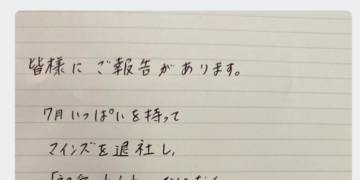 皆様に ご報告があります。
7月いっぱいを持って
マインズを退社し、